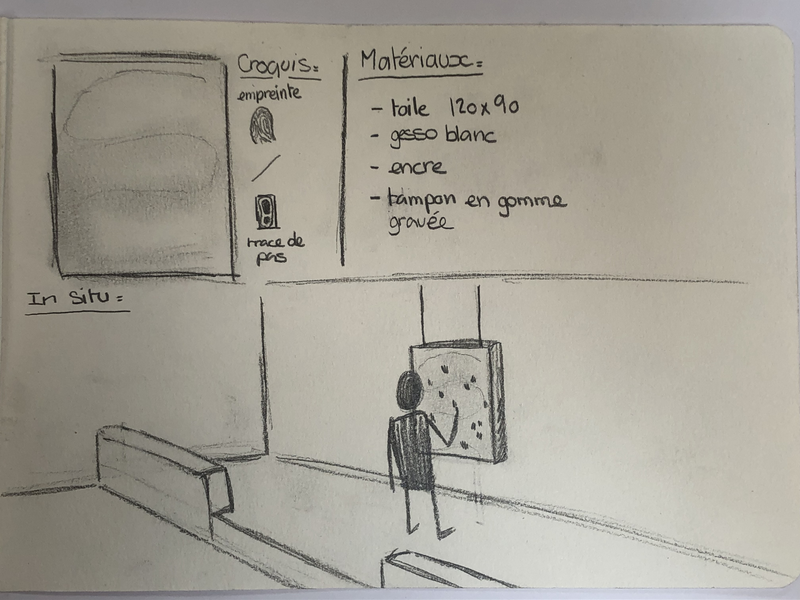 Croquis:
empreinte
trace de
pas
Matériaux:
- toile 120x90
- gesso blanc
- encre
- tampon en gomme
gravée
In situ: